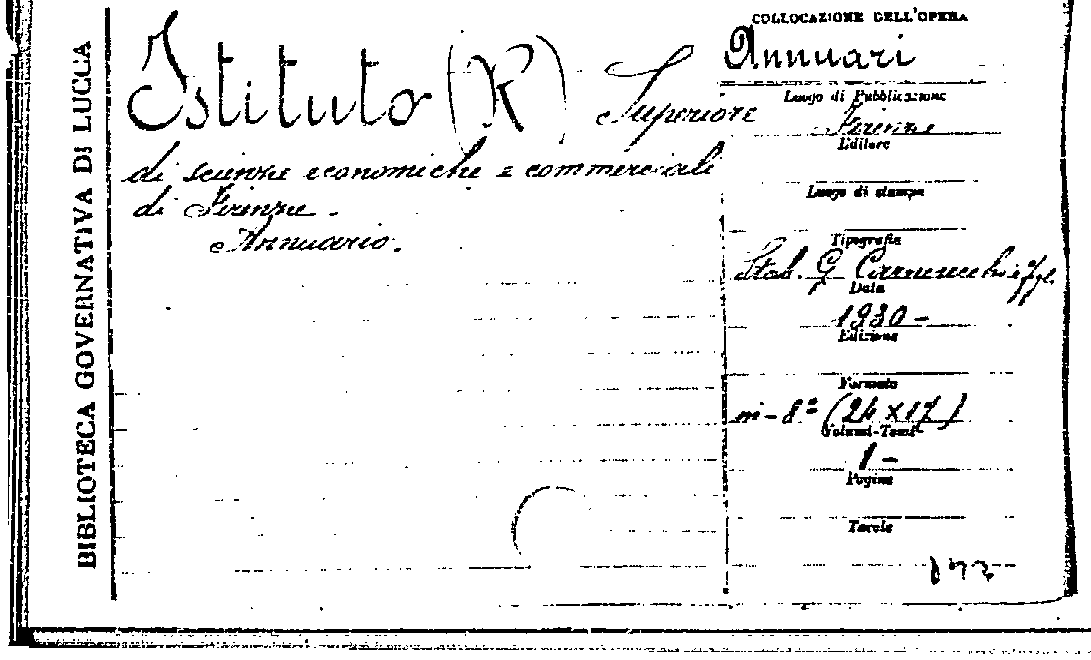 BIBLIOTECA GOVERNATIVA DI LUCCA
Istituto (R) Superiore
di scienze economiche e commerciali
di Firenze.
Annuario.
COLLOCAZIONE DELL'OPERA
Annuari
Luogo di Pubblicazione
Firenze
Editore
Luogo di stampa
Tipografia
Stab. G. Carnesecchi e figli
Data
1930-
Edizione
Formato
in-8º (24 x 17)
Volumi-Tomi
1-
Pagine
Tavole